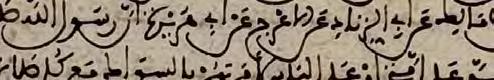 مالك عن ابي الزناد عن الاعرج عن ابي هريرة ان رسول الله
على امتي او على الناس لامرتهم بالسواك مع كل صلاة